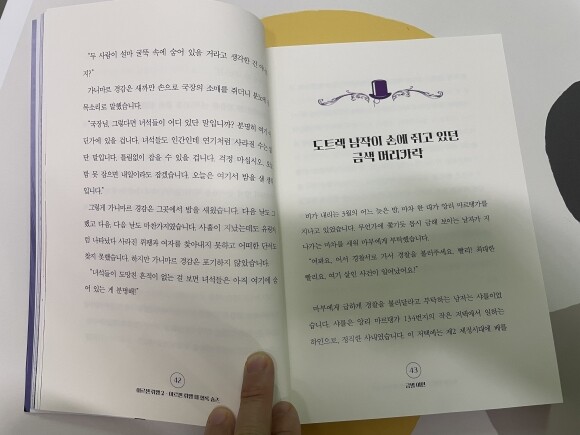 "두 사람이 설마 굴뚝 속에 숨어 있을 거라고 생각한 건
지?"
가니마르 경감은 새까만 손으로 국장의 소매를 쥐더니
목소리로 말했습니다.
"국장님, 그렇다면 녀석들이 어디 있단 말입니까? 분명히 여기
딘가에 있을 겁니다. 녀석들도 인간인데 연기처럼 사라질 수는
단 말입니다. 틀림없이 잡을 수 있을 겁니다. 걱정 마십시오.
밤 못 잡으면 내일이라도 잡겠습니다. 오늘은 여기서 밤을 샐
입니다."
그렇게 가니마르 경감은 그곳에서 밤을 새웠습니다. 다음 날도
겼고 다음, 다음 날도 마찬가지였습니다. 사흘이 지났는데도
럼 나타났다 사라진 뤼팽과 여자를 찾아내지 못하고 어떠한 단서도
찾지 못했습니다. 하지만 가니마르 경감은 포기하지 않았습니다.
"녀석들이 도망친 흔적이 없는 걸 보면 녀석들은 아직 여기에
어 있는 게 분명해!"
42
아르센 뤼팽 2 - 아르센 뤼팽 대 헐록 숌즈
도트렉 남작이 손에 쥐고 있던
금색 머리카락
비가 내리는 3월의 어느 늦은 밤, 마차 한 대가 앙리 마르탱가를
지나고 있었습니다. 무언가에 쫓기듯 몹시 급해 보이는 남자가 지
나가는 마차를 세워 마부에게 부탁했습니다.
"여봐요, 어서 경찰서로 가서 경찰을 불러주세요. 빨리! 최대한
빨리요. 여기 살인 사건이 일어났어요!"
마부에게 급하게 경찰을 불러달라고 부탁하는 남자는 샤를이었
습니다. 샤를은 앙리 마르탱가 134번지의 작은 저택에서 일하는
하인으로, 정직한 사내였습니다. 이 저택에는 제2 제정시대에 베를
43
금발 여인